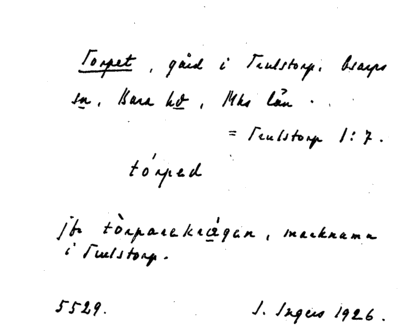 Torpet, gård i Trulstorp, Esarps
sn, Bara hd, Mhs län.
= Trulstorp 1:7.
tórped
jfr tòrparekrågen, marknamn
i Trulstorp.
5529. I. Ingers 1926.